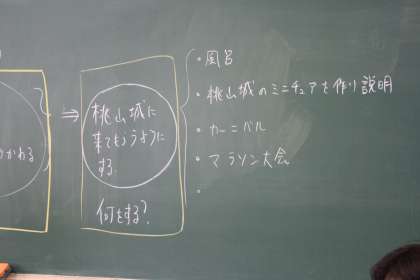 かわる
⇒
桃山城に
来てもらうように
する.
何をする?
・風呂
・桃山城のミニチュアを作り説明
・カーニバル
・マラソン大会
・